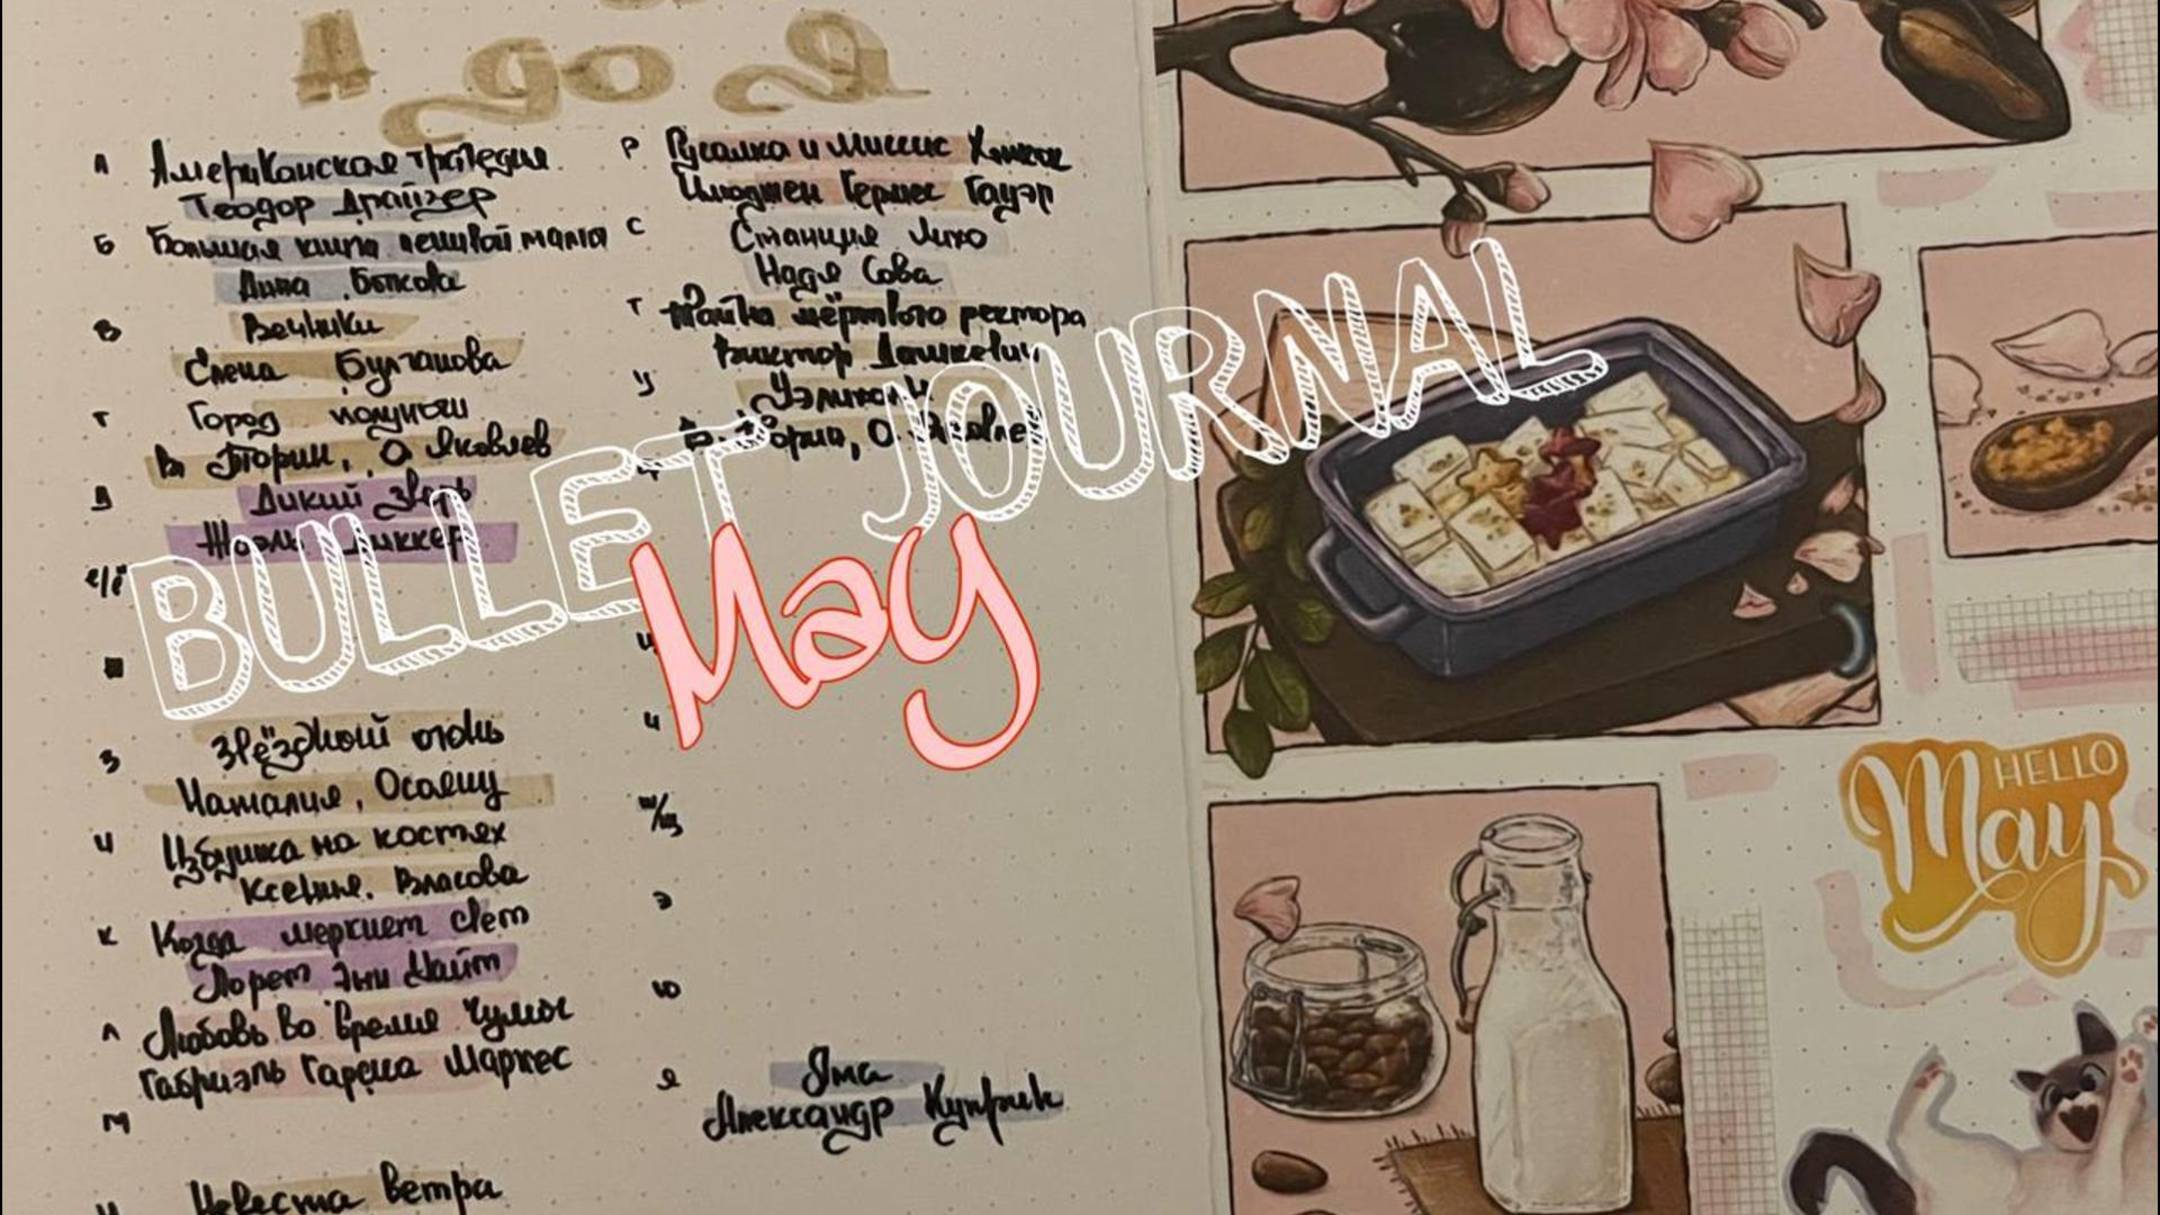 А до Я
А Американская трагедия
Теодор Драйзер
Б Большая книга ленивой мамы
Анна Быкова
В Вечники
Елена Булганова
Г Город полуночи
В. Торин, О. Яковлев
Д Дикий зверь
Жоэль Диккер
е/ё
ж
З Звёздный огонь
Наталия, Осояну
И Избушка на костях
Ксения. Власова
К Когда меркнет свет
Лорет Энн Уайт
Л Любовь во время чумы
Габриэль Гарсиа Маркес
М
Н Невеста ветра
Р Русалка и миссис Хэнкок
Имоджен Гермес Гауэр
С Станция Лихо
Надя Сова
Т Тайна мёртвого ректора
Виктор Дашкевич
У
В. Торин, О. Яковлев
ч
ш/щ
э
ю
я Яма
Александр Куприн
BULLET JOURNAL
May
HELLO
May